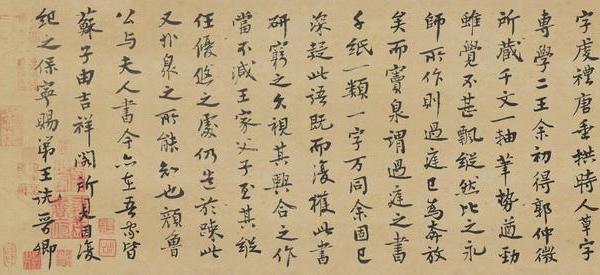 字虔禮唐垂拱時人草字
專學二王余初得郭仲微
所藏千文一軸筆勢遒勁
雖覺不甚飄縱然比之永
師所作則過庭已為奔放
矣而竇泉謂過庭之書
千紙一類一字万同余固已
深疑此語既而復獲此書
研窮之久視其興合之作
當不減王家父子至其縱
任優悠之處仍造於踈此
又非泉之所能知也顏魯
公与夫人書今亦在吾家皆
蘇子由吉祥閣所見因復
紀之保寧賜第王詵晉卿